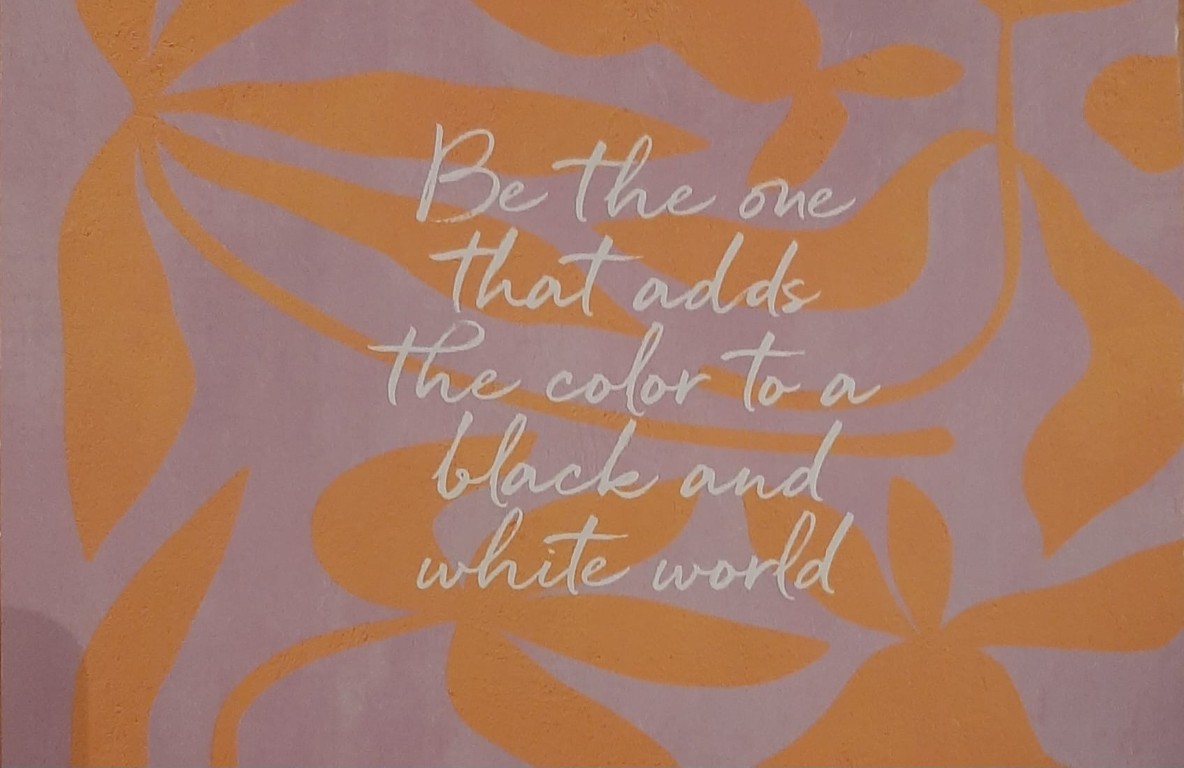 Be the one
that adds
the color to a
black and
white world